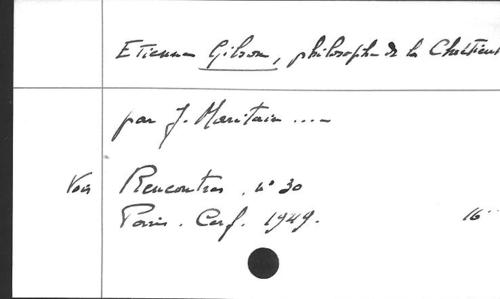 Etienne Gilson, philosophe de la Chrétient
par J. Maritain ....
Voir Rencontres, n° 30
Paris. Cerf. 1949. 16°